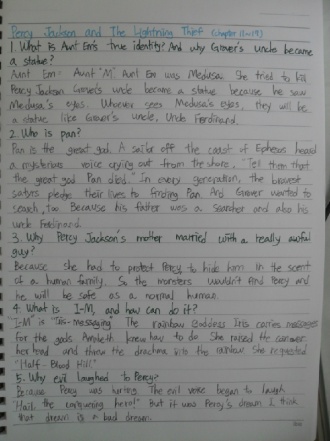 Percy Jackson and The Lightning Thief (Chapter 11~19)
1. What is Aunt Em's true identity? And why Grover's uncle became
a statue?
Aunt Em = Aunt "M" Aunt Em was Medusa. She tried to kill
Percy Jackson. Grover's uncle became a statue because he saw
Medusa's eyes. Whoever sees Medusa's eyes, they will be
a statue like Grover's uncle, Uncle Ferdinand.
2. Who is pan?
Pan is the great god. A sailor off the coast of Ephesus heard
a mysterious voice crying out from the shore, "Tell them that
the great god Pan died." In every generation, the bravest
satyrs pledge their lives to finding Pan. And Grover wanted to
search, too. Because his father was a searcher and also his
uncle Ferdinand.
3. Why Percy Jackson's mother married with a really awful
guy?
Because she had to protect Percy to hide him in the scent
of a human family. So the monsters wouldn't find Percy and
he will be safe as a normal human.
4. What is I-M, and how can do it?
"I-M" is "Iris-messaging". The rainbow Goddess Iris carries messages
for the gods. Annabeth knew how to do. She raised the
her head and threw the drachma into the rainbow. She requested
"Half-Blood Hill."
5. Why evil laughed to Percy?
Because Percy was The evil voice began to laugh.
"Hail, the conquering hero!" But it was Percy's dream. I think
that dream is a bad dream.